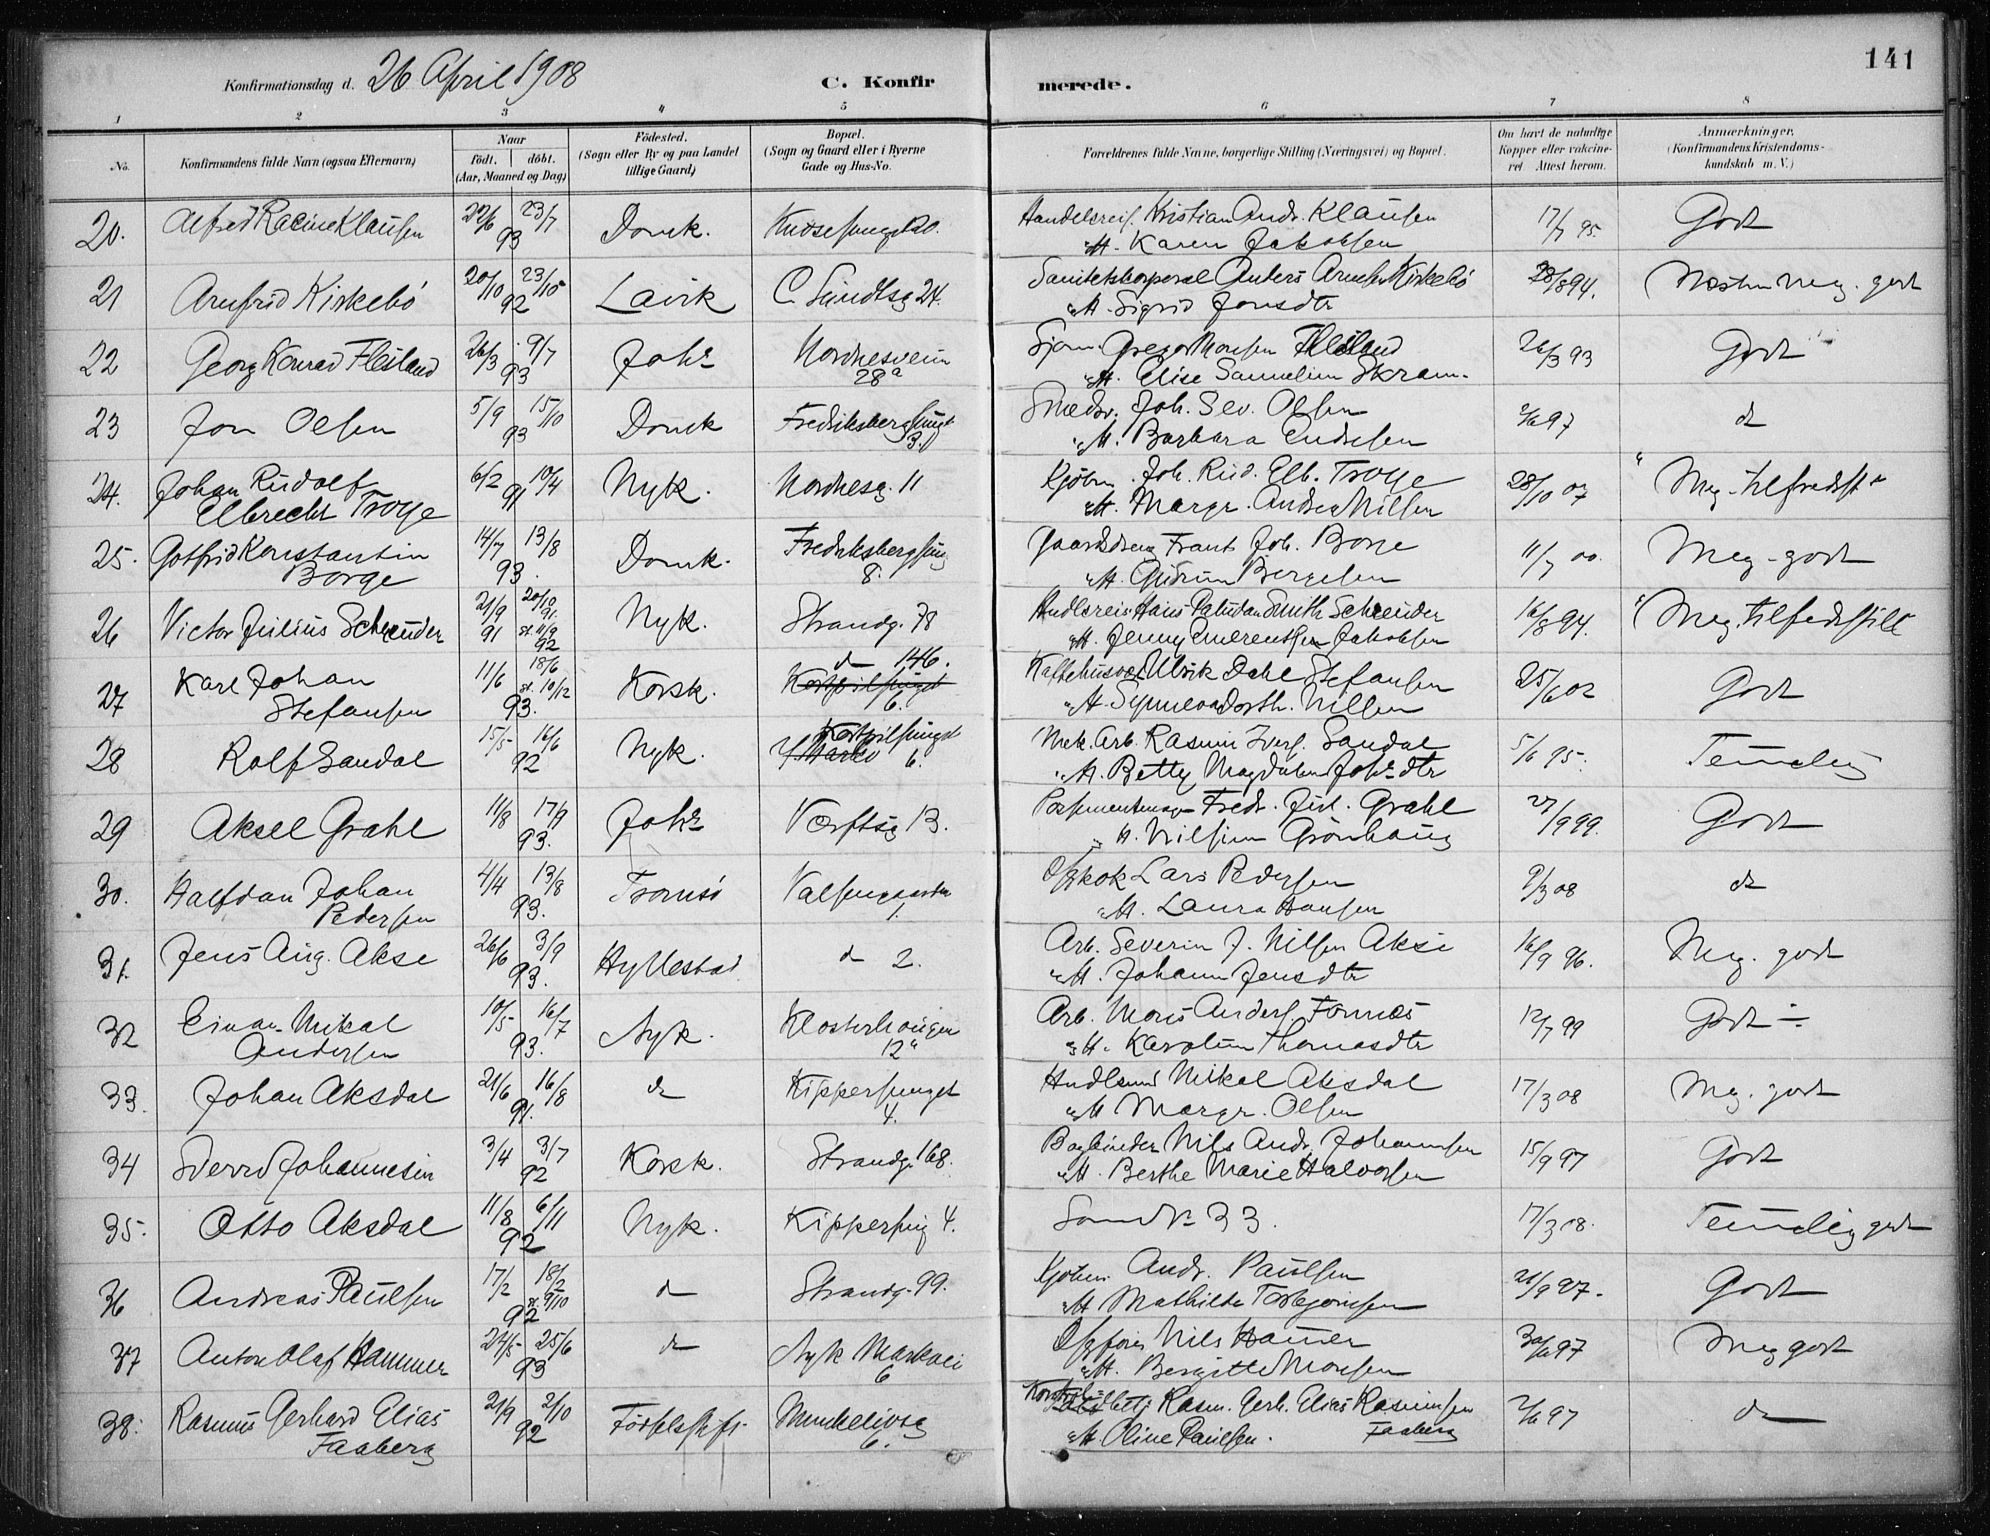 141
Konfirmationsdag d. 26 April 1908
C. Konfir
merede.
1 2 3 4 5 6 7 8
No.
Konfirmandens fulde Navn (ogsaa Efternavn)
Naar
födt. döbt.
(Aar, Maaned og Dag)
Födested.
(Sogn eller By og paa Landet
tillige Gaard)
Bopæl.
(Sogn og Gaard eller i Byerne
Gade og Hus-No.
Forældrenes fulde Navne, borgerlige Stilling (Næringsvei) og Bopæl.
Om havt de naturlige
Kopper eller vakcine-
ret. Attest herom.
Anmærkninger.
(Konfirmandens Kristendoms-
kundskab m. V.)
20. Alfred Racine Klausen 22/6 23/7 Domk. Handelsreis. Kristian Andr. Klausen 17/7 95. Godt
93 M. Karen Jakobsen
21 Arnfrid Kirkebö 20/10 23/10 Lavik C. Sundtsg 24. Sanitetskorporal Anders Kirkebö 94. Næsten meg. godt
92 M. Sigrid Jonsdtr
22 Georg Konrad Flesland 26/3 9/7 Johs Nordnesveien Flesland 26/3 93 Godt
93 28a M. Elise Skram.
23 Jon Olsen 5/9 15/10 Domk Fredriksbergsmgt Joh. Sev. Olsen 97 do
93 3. M. Barbara Endresen
24. Johan Rudolf 6/2 10/4 Nyk. Nordnesg. 11 Kjöbm. Joh. Rud. Elb. Troye 28/10 07 "Meg. tilfredsst"
Elbrecht Troye 91 M. Margr. Andrea Nilsen
25. Gotfrid Konstantin 14/7 13/8 Domk. Fredriksbergsmg Frants Joh. Borge 11/7 00. Meg. godt
Borge 93. 8. M. Gudrun Bergesen
26 Victor Julius Schreuder 21/9 20/12 91. Nyk. Strandg. 78 Handlsreis Hans Paludan Smith Schreuder 16/8 94. "Meg. tilfredsstill
91 st. 11/9 92 M. Jenny Jakobsen
27 Karl Johan 11/6 18/6 Korsk. do 146. Kaffehusv Ulrik Dahl Stefansen 25/6 02 Godt
Stefansen 93. st. 10/12 6. M. Synneva Dorth. Nilsen
28 Rolf Sandal 15/5 16/6 Nyk. 6. Mek. Arb. Rasm Ivers. Sandal 5/6 95. Temelig
92 M. Betty Magdalene Johsdtr
29 Aksel Grahl 11/8 17/9 Johs Værftsg 13. Fredr. Jul. Grahl 27/9 99. Godt
93. M. Nilsine Grönhaug
30. Halfdan Johan 4/4 13/8 Tromsö Lars Pedersen 9/3 08 do
Pedersen 93. 1. M. Laura Hansen
31. Jens Aug. Akse 26/6 3/9 Hyllestad do 2. Arb. Severin J. Nilsen Akse 16/9 96. Meg. godt
93. M. Johanne Jensdtr
32 Einar Mikal 10/5 16/7 Nyk. Klosterhaugen Arb. Mons Anders. Fornæs 12/7 99 Godt ÷
Andersen 93. 12a M. Karoline Thomasdtr
33. Johan Aksdal 21/6 16/8 do Kippersmuget Mikal Aksdal 17/3 08 Meg. godt
91. 4. M Margr. Olsen
34 Sverre Johannesen 3/4 3/7 Korsk. Strandg. 168. Bogbinder Nils Andr. Johannesen 15/9 97 Godt
92 M. Berthe Marie Halvorsen
35. Otto Aksdal 11/8 6/11 Nyk. Kippersmg 4. Som No 33. 17/3 08. Temelig godt
92
36 Andreas Paulsen 17/2 18/2 do Strandg. 99. Kjöbm Andr. Paulsen Godt
92 st. 9/10 M Mathilde Torbjörnsen
37 Anton Olaf Hammer 24/5 25/6 do Nyk Markvei Nils Hamer 97 Meg godt
93 6 M. Bergitte Monsen
38. Rasmus Gerhard Elias 21/9 2/10 Födselsstift. Munkelivsg Rasm. Gerh. Elias Rasmusen 97 do
Faaberg 92 6. M. Oline Paulsen. Faaberg